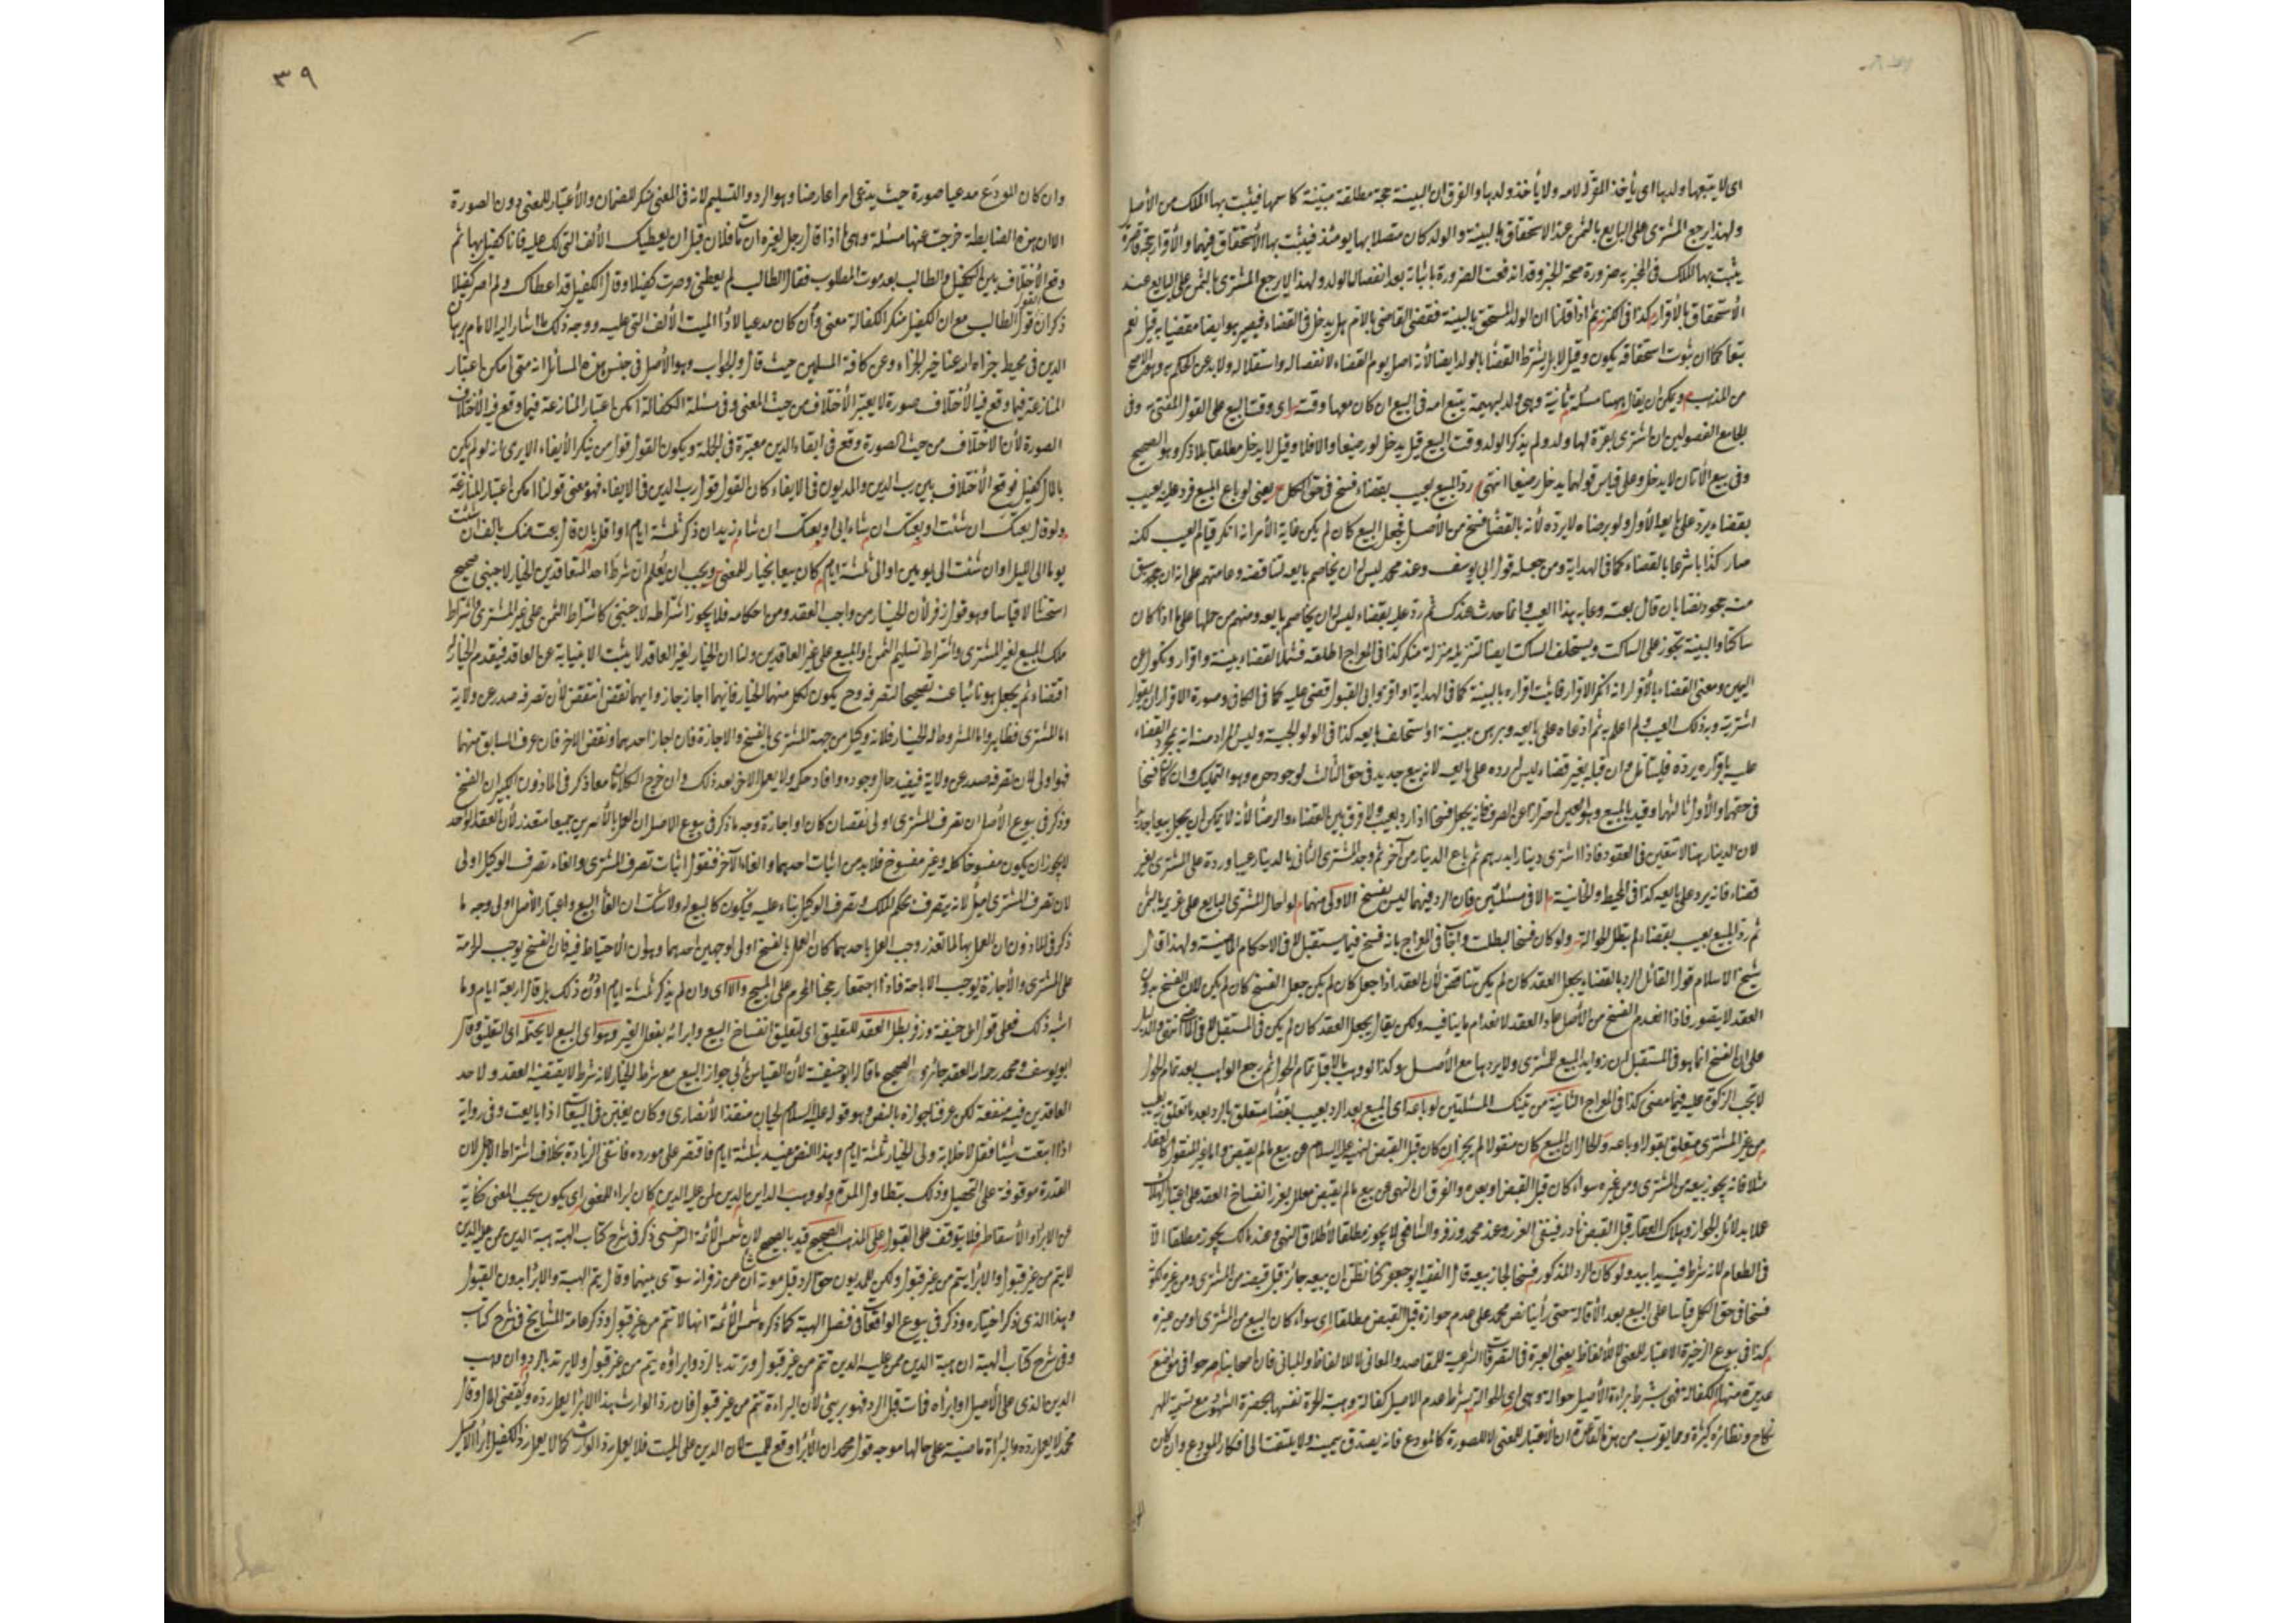 اى لا يتبعها ولدها اى يأخذ المقر له الامه ولا يأخذ ولدها والفرق ان البينة حجة مطلقة مبينة كاسمها فيثبت بها الملك من الأصل
ولهذا يرجع المشترى على البايع بالثمن عند الاستحقاق بالبينة والولد كان متصلا بها يومئذ فيثبت بها الاستحقاق فيهما والأقرار حجة قاصرة
يثبت بها الملك فى المخبر به ضرورة صحة الخبر وقد اندفعت الضرورة باثباته بعد انفصال الولد ولهذا لا يرجع المشترى بالثمن على البايع عند
الأستحقاق بالأقرار كذا فى الكنز ثم اذا قلنا ان الولد المستحق بالبينة فقضى القاضى بالام هل يدخل فى القضاء فيصير هو ايضا مقضيا به قيل نعم
تبعا كما ان ثبوت استحقاقه يكون وقيل لا بل يشترط القضاء بالولد ايضا لأنه اصل يوم القضاء لانفصاله واستقلاله ولا بد من الحكم به وهو الاصح
من المذهب ويمكن ان يقال ههنا مسئلة ثانية وهى ولد بهيمة يتبع امه فى البيع ان كان معها وقته اى وقت البيع على القول المفتى به وفى
جامع الفصولين ان اشترى بقرة لها ولد ولم يذكر الولد وقت البيع قيل يدخل لو رضيعا والا فلا وقيل لا يدخل مطلقا بلا ذكر وهو الصحيح
وفى بيع الأتان لا يدخل وعلى قياس قولها يدخل رضيعا انتهى رد المبيع بعيب بقضاء فسخ فى حق الكل يعنى لو باع المبيع فرد عليه بعيب
بقضاء يرد على بايعه الأول ولو برضاه لا يرده لأنه بالقضاء فسخ من الأصل فجعل البيع كان لم يكن غاية الأمر انه انكر قيام العيب لكنه
صار مكذبا شرعا بالقضاء كما فى الهداية ومن جعله قول ابى يوسف وعند محمد ليس له ان يخاصم بايعه لتناقضه وعامتهم على انه ان سبق
منه جحود نصا بان قال بعته وما به هذا العيب وانما حدث عندك ثم رد عليه بقضاء ليس له ان يخاصم بايعه ومنهم من حملها على ما اذا كان
ساكتا والبينة تجوز على الساكت ويستحلف الساكت ايضا لتنزيله منزلة منكر كذا فى المعراج اطلقه فشمل القضاء ببينة واقرار ونكول عن
اليمين ومعنى القضاء بالأقرار انه انكر الاقرار فاثبت اقراره بالبينة كما فى الهداية او اقر وابى القبول قضى عليه كما فى الكافى وصورة الاقرار ان يقول
اشتريته وبه ذلك العيب ولم اعلم به ثم ادعاه على بايعه وبرهن ببينة او استحلف بايعه كذا فى الولوالجية وليس المراد منه انه بمجرد القضاء
عليه باقراره يرده فليتأمل وان قبله بغير قضاء ليس له رده على بايعه لانه بيع جديد فى حق الثالث لوجود حده وهو التمليك وان كان فسخا
فى حقهما والأول ثالثهما وقيد بالمبيع وهو العين احترازا عن الصرف فانه يجعل فسخا اذا رد بعيب ولا فرق بين القضاء والرضا لأنه لا يمكن ان يجعل بيعا جديدا
لان الدينار هنا لا يتعين فى العقود فاذا اشترى دينارا بدرهم ثم باع الدينار من آخر ثم وجد المشترى الثانى بالدينار عيبا ورده على المشترى بغير
قضاء فانه يرده على بايعه كذا فى المحيط والخانية الا فى مسئلتين فان الرد فيهما ليس بفسخ الاولى منهما لو احال المشترى البايع على غريمه بالثمن
ثم رد المبيع بعيب بقضاء لم تبطل الحوالة ولو كان فسخا لبطلت واجاب فى المعراج بانه فسخ فيما يستقبل لا فى الاحكام الماضية ولهذا قال
شيخ الاسلام قول القائل الرد بالقضاء يجعل العقد كان لم يكن تناقض لأن العقد اذا جعل كان لم يكن جعل الفسخ كان لم يكن لان الفسخ بدون
العقد لا يتصور فاذا انعدم الفسخ من الأصل عاد العقد لانعدام ما ينافيه ولكن يقال يجعل العقد كان لم يكن فى المستقبل لا فى الماضى انتهى والدليل
على ان الفسخ انما هو فى المستقبل ان زوايد المبيع للمشترى ولا يردها مع الأصل وكذا لو وهب مالا قبل تمام الحول ثم رجع الواهب بعد تمام الحول
لا تجب الزكوة عليه فيما مضى كذا فى المعراج الثانية من تينك المسئلتين لو باعه اى المبيع بعد الرد بعيب بقضاء متعلق بالرد بعد ما تعلق به بعيب
من غير المشترى متعلق بقوله لو باعه والحال ان المبيع كان منقولا لم يجز ان كان قبل القبض لنهيه عليه السلام عن بيع ما لم يقبض واما غير المنقول كالعقار
مثلا فانه يجوز بيعه من المشترى ومن غيره سواء كان قبل القبض او بعده والفرق ان النهى عن بيع ما لم يقبض معلل بغرر انفساخ العقد على اعتبار الهلاك
عملا بدلائل الجواز وهلاك العقار قبل القبض نادر فينتفى الغرر وعند محمد وزفر والشافعى لا يجوز مطلقا لأطلاق النهى وعند مالك يجوز مطلقا الا
فى الطعام لانه شرط فيه يدا بيد ولو كان الرد المذكور فسخا لجاز بيعه قال الفقيه ابو جعفر كنا نظن ان بيعه جائز قبل قبضه من المشترى ومن غيره لكونه
فسخا فى حق الكل قياسا على البيع بعد الأقالة حتى رأينا نص محمد على عدم جوازه قبل القبض مطلقا اى سواء كان البيع من المشترى او من غيره
كذا فى بيوع الذخيرة الاعتبار للمعنى لا للألفاظ يعنى العبرة فى التصرفات الشرعية للمقاصد والمعانى لا للالفاظ والمبانى فان اصحابنا صرحوا فى مواضع
عديدة منها الكفالة فهى بشرط براءة الأصيل حوالة وهى اى الحوالة بشرط عدم الاصيل كفالة وهبة الحرة نفسها بحضرة الشهود مع تسمية المهر
نكاح ونظائره كثيرة ومما يقرب من هذه القاعدة ان الاعتبار للمعنى لا للصورة كالمودع فانه يصدق بيمينه ولا يلتفت الى انكار المودع وان كان
٣٩
وان كان المودَع مدعيا صورة حيث يدعى امرا عارضا وهو الرد والتسليم لانه فى المعنى منكر للضمان والأعتبار للمعنى دون الصورة
الا ان هذه الضابطة خرجت عنها مسئلة وهى ما اذا قال رجل لغيره ان مات فلان قبل ان يعطيك الألف التى لك عليه فانا كفيل بها ثم
وقع الأختلاف بين الكفيل والطالب بعد موت المطلوب فقال الطالب لم يعطنى وصرت كفيلا وقال الكفيل قد اعطاك ولم اصر كفيلا
ذكر ان القول قول الطالب مع ان الكفيل منكر الكفالة معنى وأن كان مدعيا لاداء الميت الألف التى عليه ووجه ذلك ما اشار اليه الامام برهان
الدين فى محيطه جزاه الله عنا خير الجزاء وعن كافة المسلمين حيث قال والجواب وهو الأصل فى جنس هذه المسائل انه متى امكن اعتبار
المنازعة فيما وقع فيه الأختلاف صورة لا يعتبر الأختلاف من حيث المعنى وفى مسئلة الكفالة امكن اعتبار المنازعة فيما وقع فيه الأختلاف
الصورة لأن الاختلاف من حيث الصورة وقع فى ايفاء الدين معتبرة فى الجملة ويكون القول قول من ينكر الأيفاء الا يرى انه لو لم يكن
بالمال كفيل فوقع الأختلاف بين رب الدين والمديون فى الايفاء كان القول قول رب الدين فى الايفاء فهو معنى قولنا امكن اعتبار المنازعة
ولو قال بعتك ان شئت او بعتك ان شاء ابى او بعتك ان شاء زيد ان ذكر ثلثة ايام او اقل بان قال بعت منك بالف ان شئت
يوما الى الليل او ان شئت الى يومين او الى ثلثة ايام كان بيعا بخيار للمعنى ويجب ان يُعلم ان شرط احد المتعاقدين الخيار لاجنبى صحيح
استحسانا لا قياسا وهو قول زفر لأن الخيار من واجب العقد ومن احكامه فلا يجوز اشتراطه لاجنبى كاشتراط الثمن على غير المشترى واشتراط
ملك المبيع لغير المشترى واشتراط تسليم الثمن او المبيع على غير العاقدين ولنا ان الخيار لغير العاقد لا يثبت الا بنيابة عن العاقد فيقدم الخيار له
اقتضاء ثم يجعل هو نائبا عنه تصحيحا لتصرفه وح يكون لكل منهما الخيار فايهما اجاز جاز وايهما نقض انتقض لأن تصرفه صدر عن ولاية
اما المشترى فظاهر واما المشروط له الخيار فلانه وكيل من جهة المشترى بالفسخ والاجازة فان اجاز احدهما ونقض الاخر فان عرف السابق منهما
فهو اولى لان تصرفه صدر عن ولاية فيفيد حال وجوده وافاد حكمه ولا يعمل الاخر بعد ذلك وان خرج الكلامان معا ذكر فى الماذون الكبير ان الفسخ
وذكر فى بيوع الأصل ان تصرف المشترى اولى نقضا كان او اجازة وجه ما ذكر فى بيوع الاصل ان العمل بالأمرين جميعا متعذر لأن العقد الواحد
لا يجوز ان يكون مفسوخا كله وغير مفسوخ فلا بد من اثبات احدهما والغاء الآخر فنقول اثبات تصرف المشترى والغاء تصرف الوكيل اولى
لان تصرف المشترى اصل لانه يتصرف بحكم الملك وتصرف الوكيل بناء عليه فيكون كالبيع له ولا شك ان الغاء البيع واعتبار الأصل اولى وجه ما
ذكر فى الماذون ان العمل بهما لما تعذر وجب العمل باحدهما كان العمل بالفسخ اولى لوجهين احدهما وهو ان الاحتياط فيه فان الفسخ يوجب لحرامة
على المشترى والأجازة يوجب الاباحة فاذا اجتمعا رجحنا المحرم على المبيح والا اى وان لم يذكر ثلثة ايام او دون ذلك بل قال اربعة ايام وما
اشبه ذلك فعلى قول ابى حنيفة وزفر بطل العقد للتعليق اى لتعليق انفساخ البيع وابرائه بفعل الغير وهو اى البيع لا يحتمله اى التعليق وقال
ابو يوسف ومحمد رحمهما الله العقد جائز والصحيح ما قال ابو حنيفة لأن القياس يأبى جواز البيع مع شرط الخيار لانه شرط لا يقتضيه العقد ولاحد
العاقدين فيه منفعة لكن عرفنا جوازه بالنص وهو قوله عليه السلام لحبان بن منقذ الأنصارى وكان يغبن فى البياعات اذا بايعت وفى رواية
اذا ابتعت شيئا فقل لا خلابة ولى الخيار ثلثة ايام وهذا النص مقيد بثلثة ايام فاقتصر على مورده فانتفى الزيادة بخلاف اشتراط الاجل لان
القدرة موقوفة على التحصيل وذلك بتطاول المدة ولو وهب الداين الدين لمن عليه الدين كان ابراء للمعنى اى يكون بحسب المعنى كناية
عن الابراء والأسقاط فلا يتوقف على القبول على المذهب الصحيح قيد بالصحيح لان شمس الأئمة السرخسى ذكر فى شرح كتاب الهبة هبة الدين ممن عليه الدين
لا يتم من غير قبول والابراء يتم من غير قبول ولكن للمديون حق الرد قبل موته ان شاء وعن زفر انه سوّى بينهما وقال يتم الهبة والابراء بدون القبول
وهذا الذى ذكر اختياره وذكر فى بيوع الواقعات فى فصل الهبة كما ذكره شمس الأئمة انها لا تتم من غير قبول وذكر عامة المشايخ فى شرح كتاب
وفى شرح كتاب الهبة ان هبة الدين ممن عليه الدين تتم من غير قبول وترتد بالرد وابراؤه يتم من غير قبول ولا يرتد بالرد وان وهب
الدين الذى على الأصيل او ابرأه فمات قبل الرد فهو برئ لأن البراءة تتم من غير قبول فان رد الوارث هذا الابراء يعمل رده ويقضى المال وقال
محمد لا يعمل رده والبراة ماضية على حالها موجه قول محمد ان الأبراء وقع للميت لان الدين على الميت فلا يعمل رد الوارث كما لا يعمل رد الكفيل ابراء الاصيل